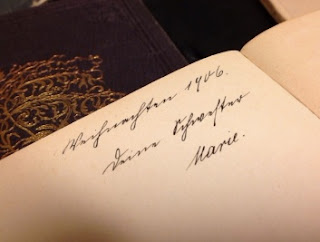 Weihnachten 1906.
Deine Schwester
Marie.